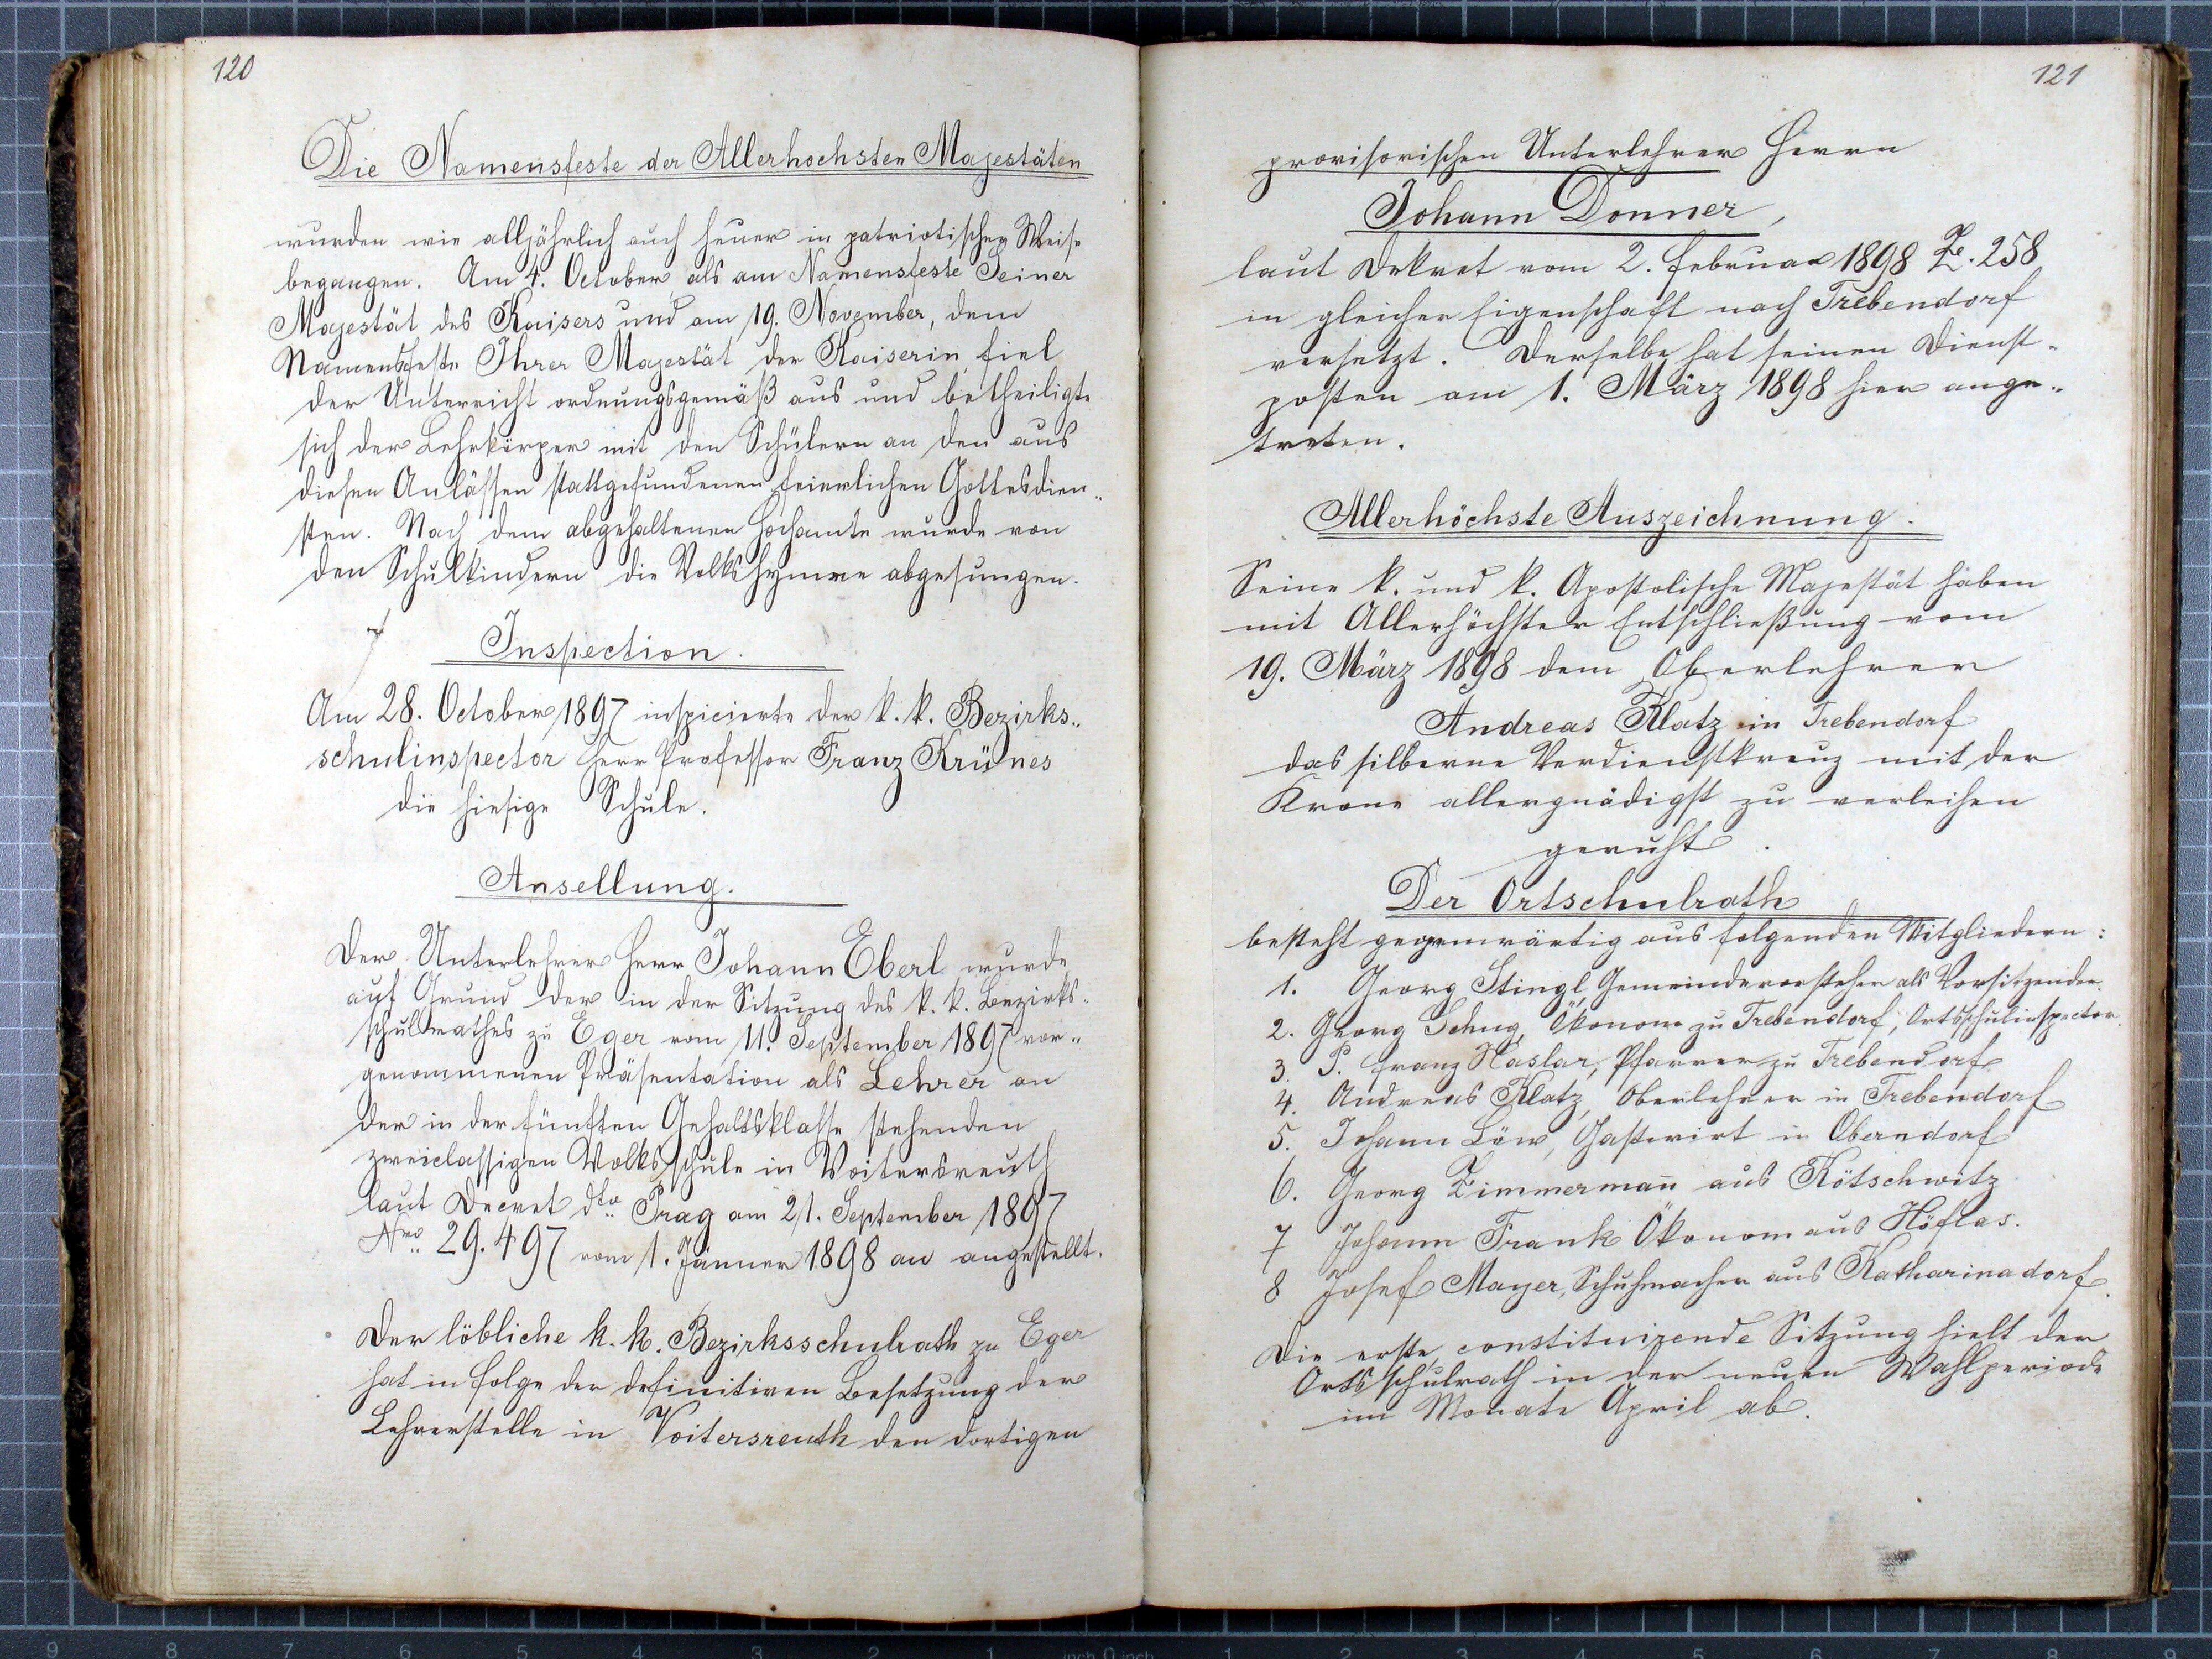 120
Die Namensfeste der Allerhochsten Majestäten
wurden wie alljährlich auch heuer in patriotischer Weise
begangen. Am 4. October als am Namensfeste Seiner
Majestät des Kaisers und am 19. November, dem
Namensfeste Ihrer Majestät der Kaiserin fiel
der Unterricht ordnungsgemäß aus und betheiligte
sich der Lehrkörper mit den Schülern an den aus
diesen Anlässen stattgefundenen feierlichen Gottesdien-
sten. Nach dem abgehaltenen Hochamte wurde von
den Schulkindern die Volkshymne abgesungen.
Inspection.
Am 28. October 1897 inspicierte der k. k. Bezirks-
schulinspector Herr Professor Franz Krünes
die hiesige Schule.
Ansellung.
Der Unterlehrer Herr Johann Eberl wurde
auf Grund der in der Sitzung des k. k. Bezirks-
schulrathes zu Eger vom 11. September 1897 vor-
genommenen Präsentation als Lehrer an
der in der fünften Gehaltsklasse stehenden
zweiclassigen Volksschule in Voitersreuth
laut Decret dto Prag am 21. September 1897
Nro 29.497 vom 1. Jänner 1898 an angestellt.
Der löbliche k. k. Bezirksschulrath zu Eger
hat in folge der definitiven Besetzung der
Lehrerstelle in Voitersreuth den dortigen
121
provisorischen Unterlehrer Herrn
Johann Donner,
laut Dekret vom 2. Februar 1898 Ze. 258
in gleicher Eigenschaft nach Trebendorf
versetzt. Derselbe hat seinen Dienst-
posten am 1. März 1898 hier ange-
treten.
Allerhöchste Auszeichnung.
Seine k. und k. Apostolische Majestät haben
mit Allerhöchster Entschließung vom
19. März 1898 dem Oberlehrer
Andreas Klatz in Trebendorf
das silberne Verdienstkreuz mit der
Krone allergnädigst zu verleihen
geruht.
Der Ortschulrath
besteht gegenwärtig aus folgenden Mitgliedern:
1. Georg Stingl, Gemeindevorsteher als Vorsitzender.
2. Georg Schug, Ökonom zu Trebendorf, Ortsschulinspector.
3. P. Franz Haslar, Pfarrer zu Trebendorf
4. Andreas Klatz, Oberlehrer in Trebendorf
5. Johann Löw, Gastwirt in Oberndorf
6. Georg Zimmermañ aus Kötschwitz
7 Johann Frank Ökonom aus Höflas.
8 Josef Mayer, Schuhmacher aus Katharinadorf.
Die erste constituirende Sitzung hielt der
Ortsschulrath in der neuen Wahlperiode
im Monate April ab.
9 8 7 6 5 4 3 2 1 inch 0 inch 1 2 3 4 5 6 7 8 9